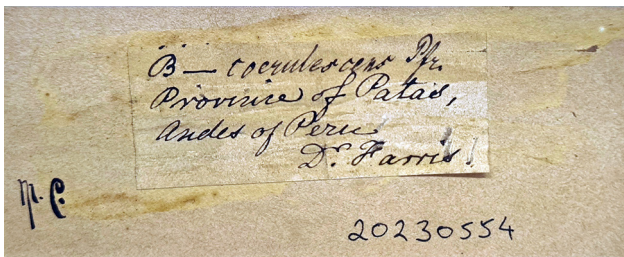 B— coerulescens Pfr.
Province of Patas,
Andes of Peru
Dr. Farris!
M. C.
20230554